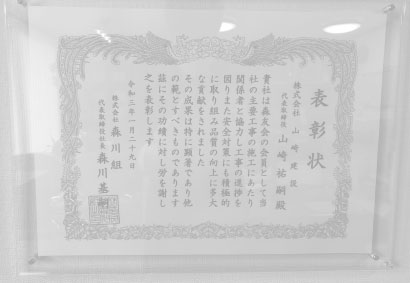 表彰状
株式会社 山﨑建設
代表取締役 山﨑祐嗣殿
貴社は森友会の会員として当
社の主要工事の施工にあたり
関係者と協力し工事の進捗を
図りまた安全対策にも積極的
に取り組み品質の向上に多大
な貢献をされました
その成果は特に顕著であり他
の範とすべきものであります
茲にその功績に対し労を謝し
之を表彰します
令和三年一月二十九日
株式会社 森川組
代表取締役社長 森川基嗣